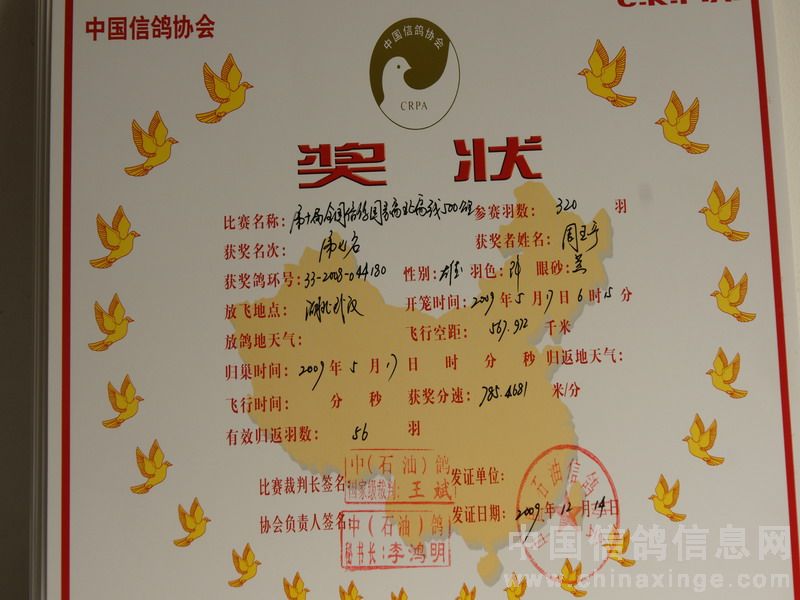 中国信鸽协会
中国信鸽协会
CRPA
奖 状
比赛名称: 第十届全国信鸽 500公里 参赛羽数: 320 羽
获奖名次: 第七名 获奖者姓名: 周
获奖鸽环号: 33-2008-044180 性别: 雄 羽色: 眼砂: 黄
放飞地点: 湖北武汉 开笼时间: 2009 年 5 月 17 日 6 时 15 分
放鸽地天气: 飞行空距: 567.972 千米
归巢时间: 2009 年 5 月 17 日 时 分 秒 归返地天气:
飞行时间: 分 秒 获奖分速: 785.4681 米/分
有效归返羽数: 56 羽
中(石油)鸽
比赛裁判长签名: 国家级裁判: 王斌 发证单位:
石油信鸽
协会负责人签名: 中(石油)鸽 发证日期: 2009 年 12 月 14 日
秘书长: 李鸿明
中国信鸽信息网
www.chinaxinge.com